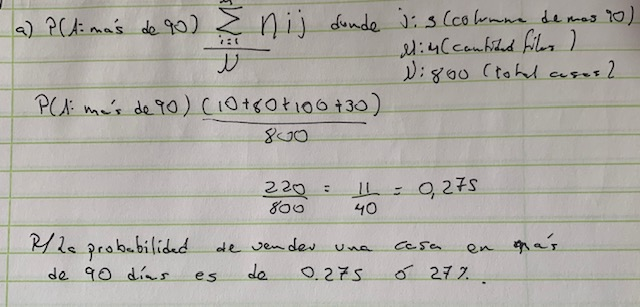 a) P(A: más de 90) m∑i=1 nij donde j: 3 (columna de mas 90)
N M: 4 (cantidad filas)
N: 800 (total casas)
P(A: más de 90) (10+80+100+30)
800
220 = 11 = 0,275
800 40
R/ La probabilidad de vender una casa en más
de 90 días es de 0.275 ó 27%.